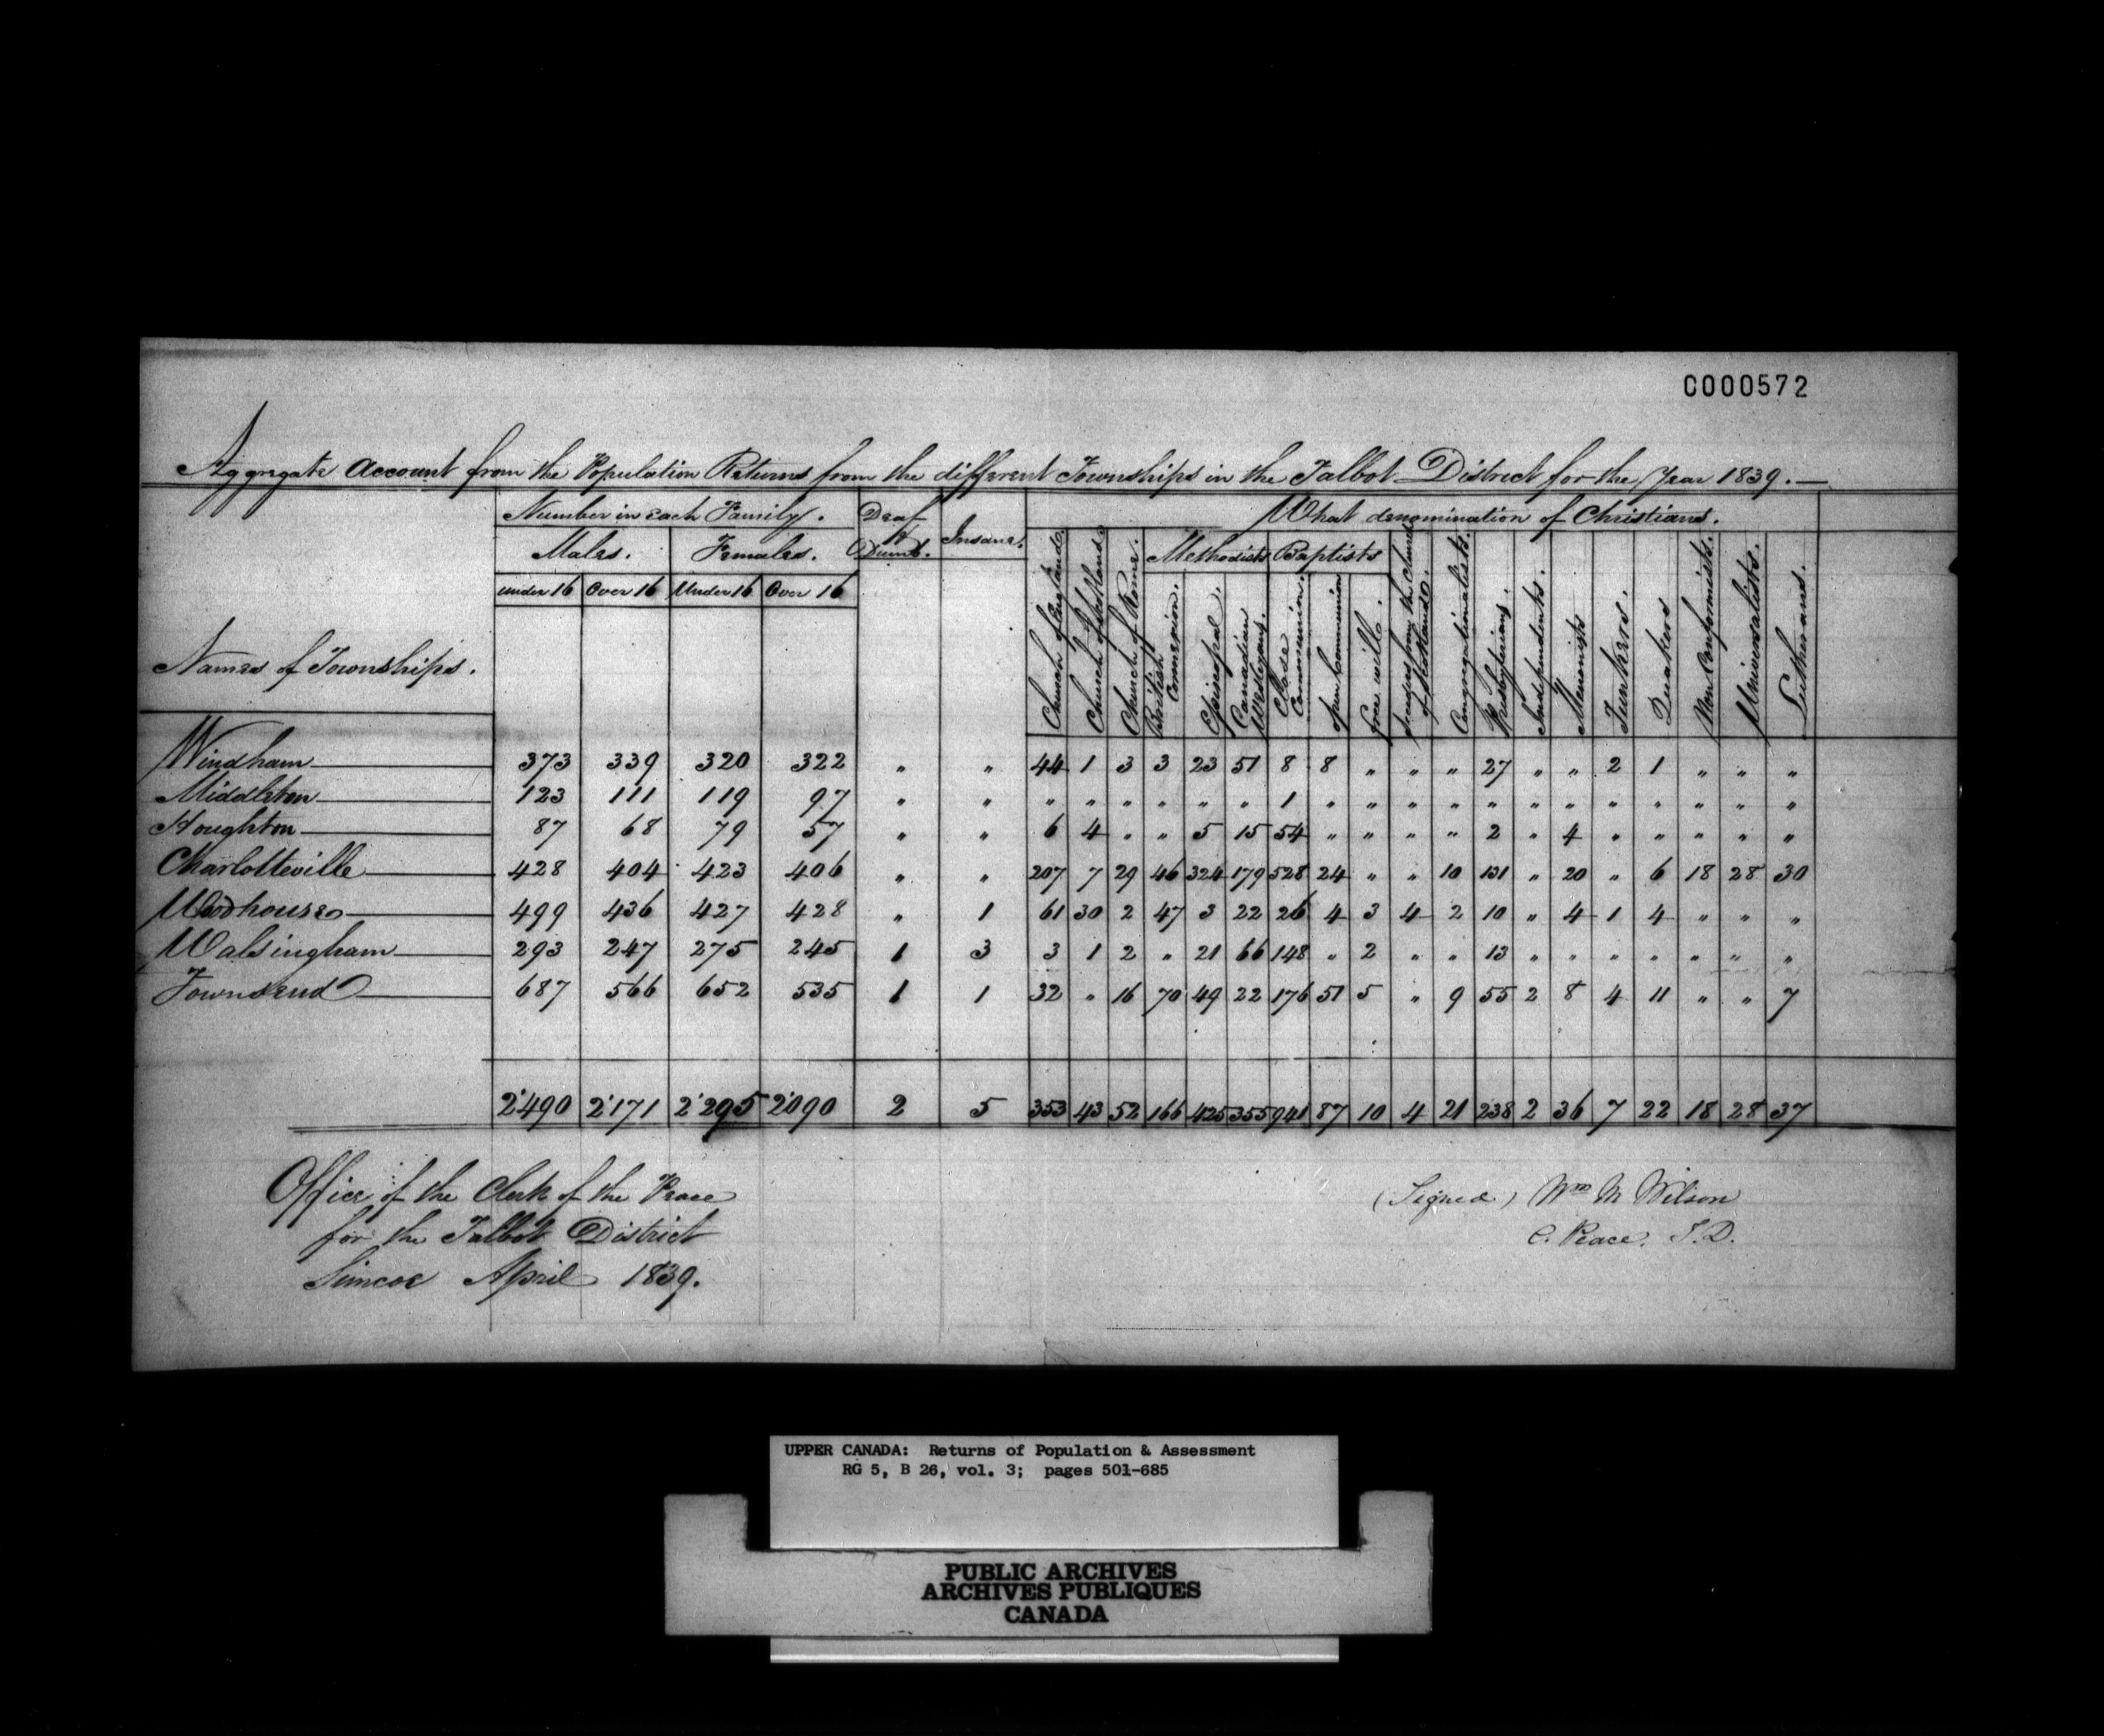 C000572
Aggregate Account from the Population Returns from the different Townships in the Talbot District for the Year 1839.
Number in each Family. Deaf & Dumb. Insane. What denomination of Christians.
Males. Females. Methodists Baptists
under 16 Over 16 Under 16 Over 16
Names of Townships. Church of England Church of Scotland Church of Rome. British Connexion. Episcopal. Canadian Wesleyans. Close Communion. Open Communion Free will. from the Church of Scotland. Congregationalists. Presbyterians. Independents. Menonists Tunkers. Quakers Non Conformists. Universalists. Lutherans.
Windham 373 339 320 322 " " 44 1 3 3 23 51 8 8 " " " 27 " " 2 1 " " "
Middleton 123 111 119 97 " " " " " " " " 1 " " " " " " " " " " " "
Houghton 87 68 79 57 " " 6 4 " " 5 15 54 " " " " 2 " 4 " " " " "
Charlotteville 428 404 423 406 " " 207 7 29 46 324 179 528 24 " " 10 131 " 20 " 6 18 28 30
Woodhouse 499 436 427 428 " 1 61 30 2 47 3 22 26 4 3 4 2 10 " 4 1 4 " " "
Walsingham 293 247 275 245 1 3 3 1 2 " 21 66 148 " 2 " " 13 " " " " " " "
Townsend 687 566 652 535 1 1 32 " 16 70 49 22 176 51 5 " 9 55 2 8 4 11 " " 7
2'490 2'171 2'295 2'090 2 5 353 43 52 166 425 355 941 87 10 4 21 238 2 36 7 22 18 28 37
Office of the Clerk of the Peace
for the Talbot District
Simcoe April 1839.
(Signed) Wm M Wilson
C. Peace. T.D.
UPPER CANADA: Returns of Population & Assessment
RG 5, B 26, vol. 3; pages 501-685
PUBLIC ARCHIVES
ARCHIVES PUBLIQUES
CANADA